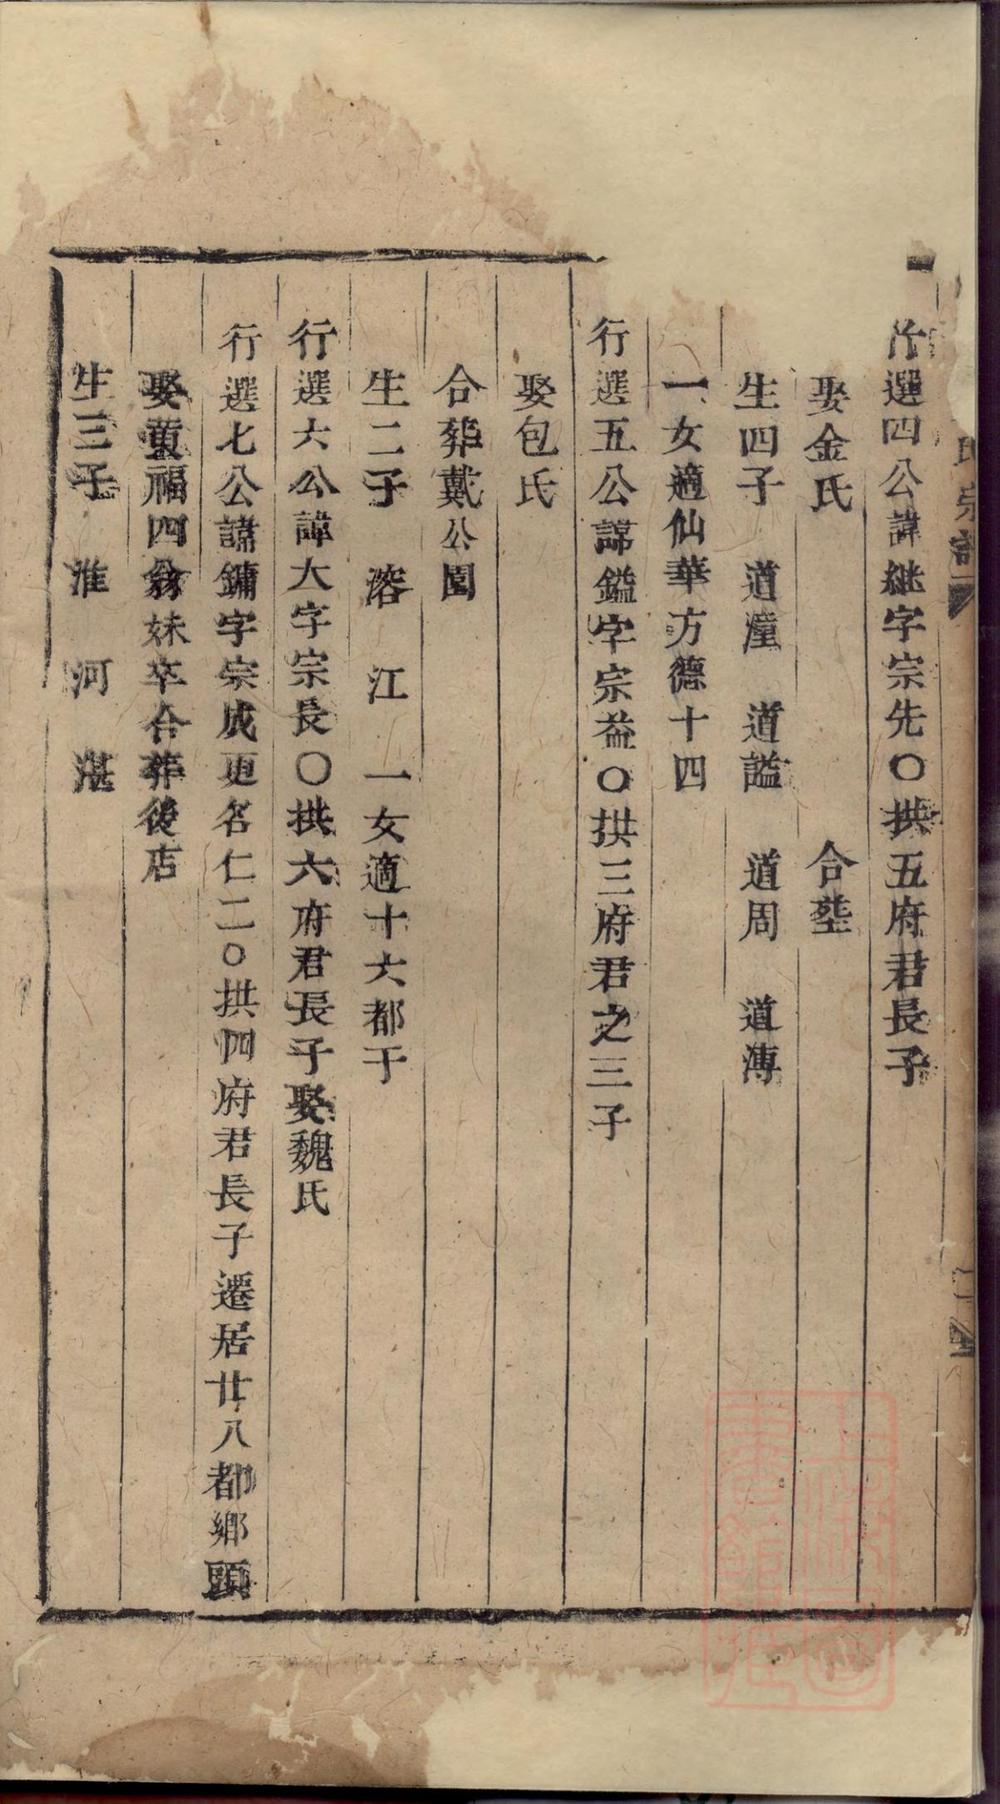 氏宗譜
行選四公諱継字宗先〇拱五府君長子
娶金氏 合塟
生四子 道潼 道謚 道周 道溥
一女適仙華方德十四
行選五公諱鎰字宗益〇拱三府君之三子
娶包氏
合葬戴公園
生二子 溶 江 一女適十六都于
行選六公諱大字宗長〇拱六府君長子娶魏氏
行選七公諱鏞字宗成更名仁二〇拱四府君長子遷居廿八都鄉頭
娶黄福四翁妹卒合葬後店
生三子 淮 河 湛
上海圖書館藏